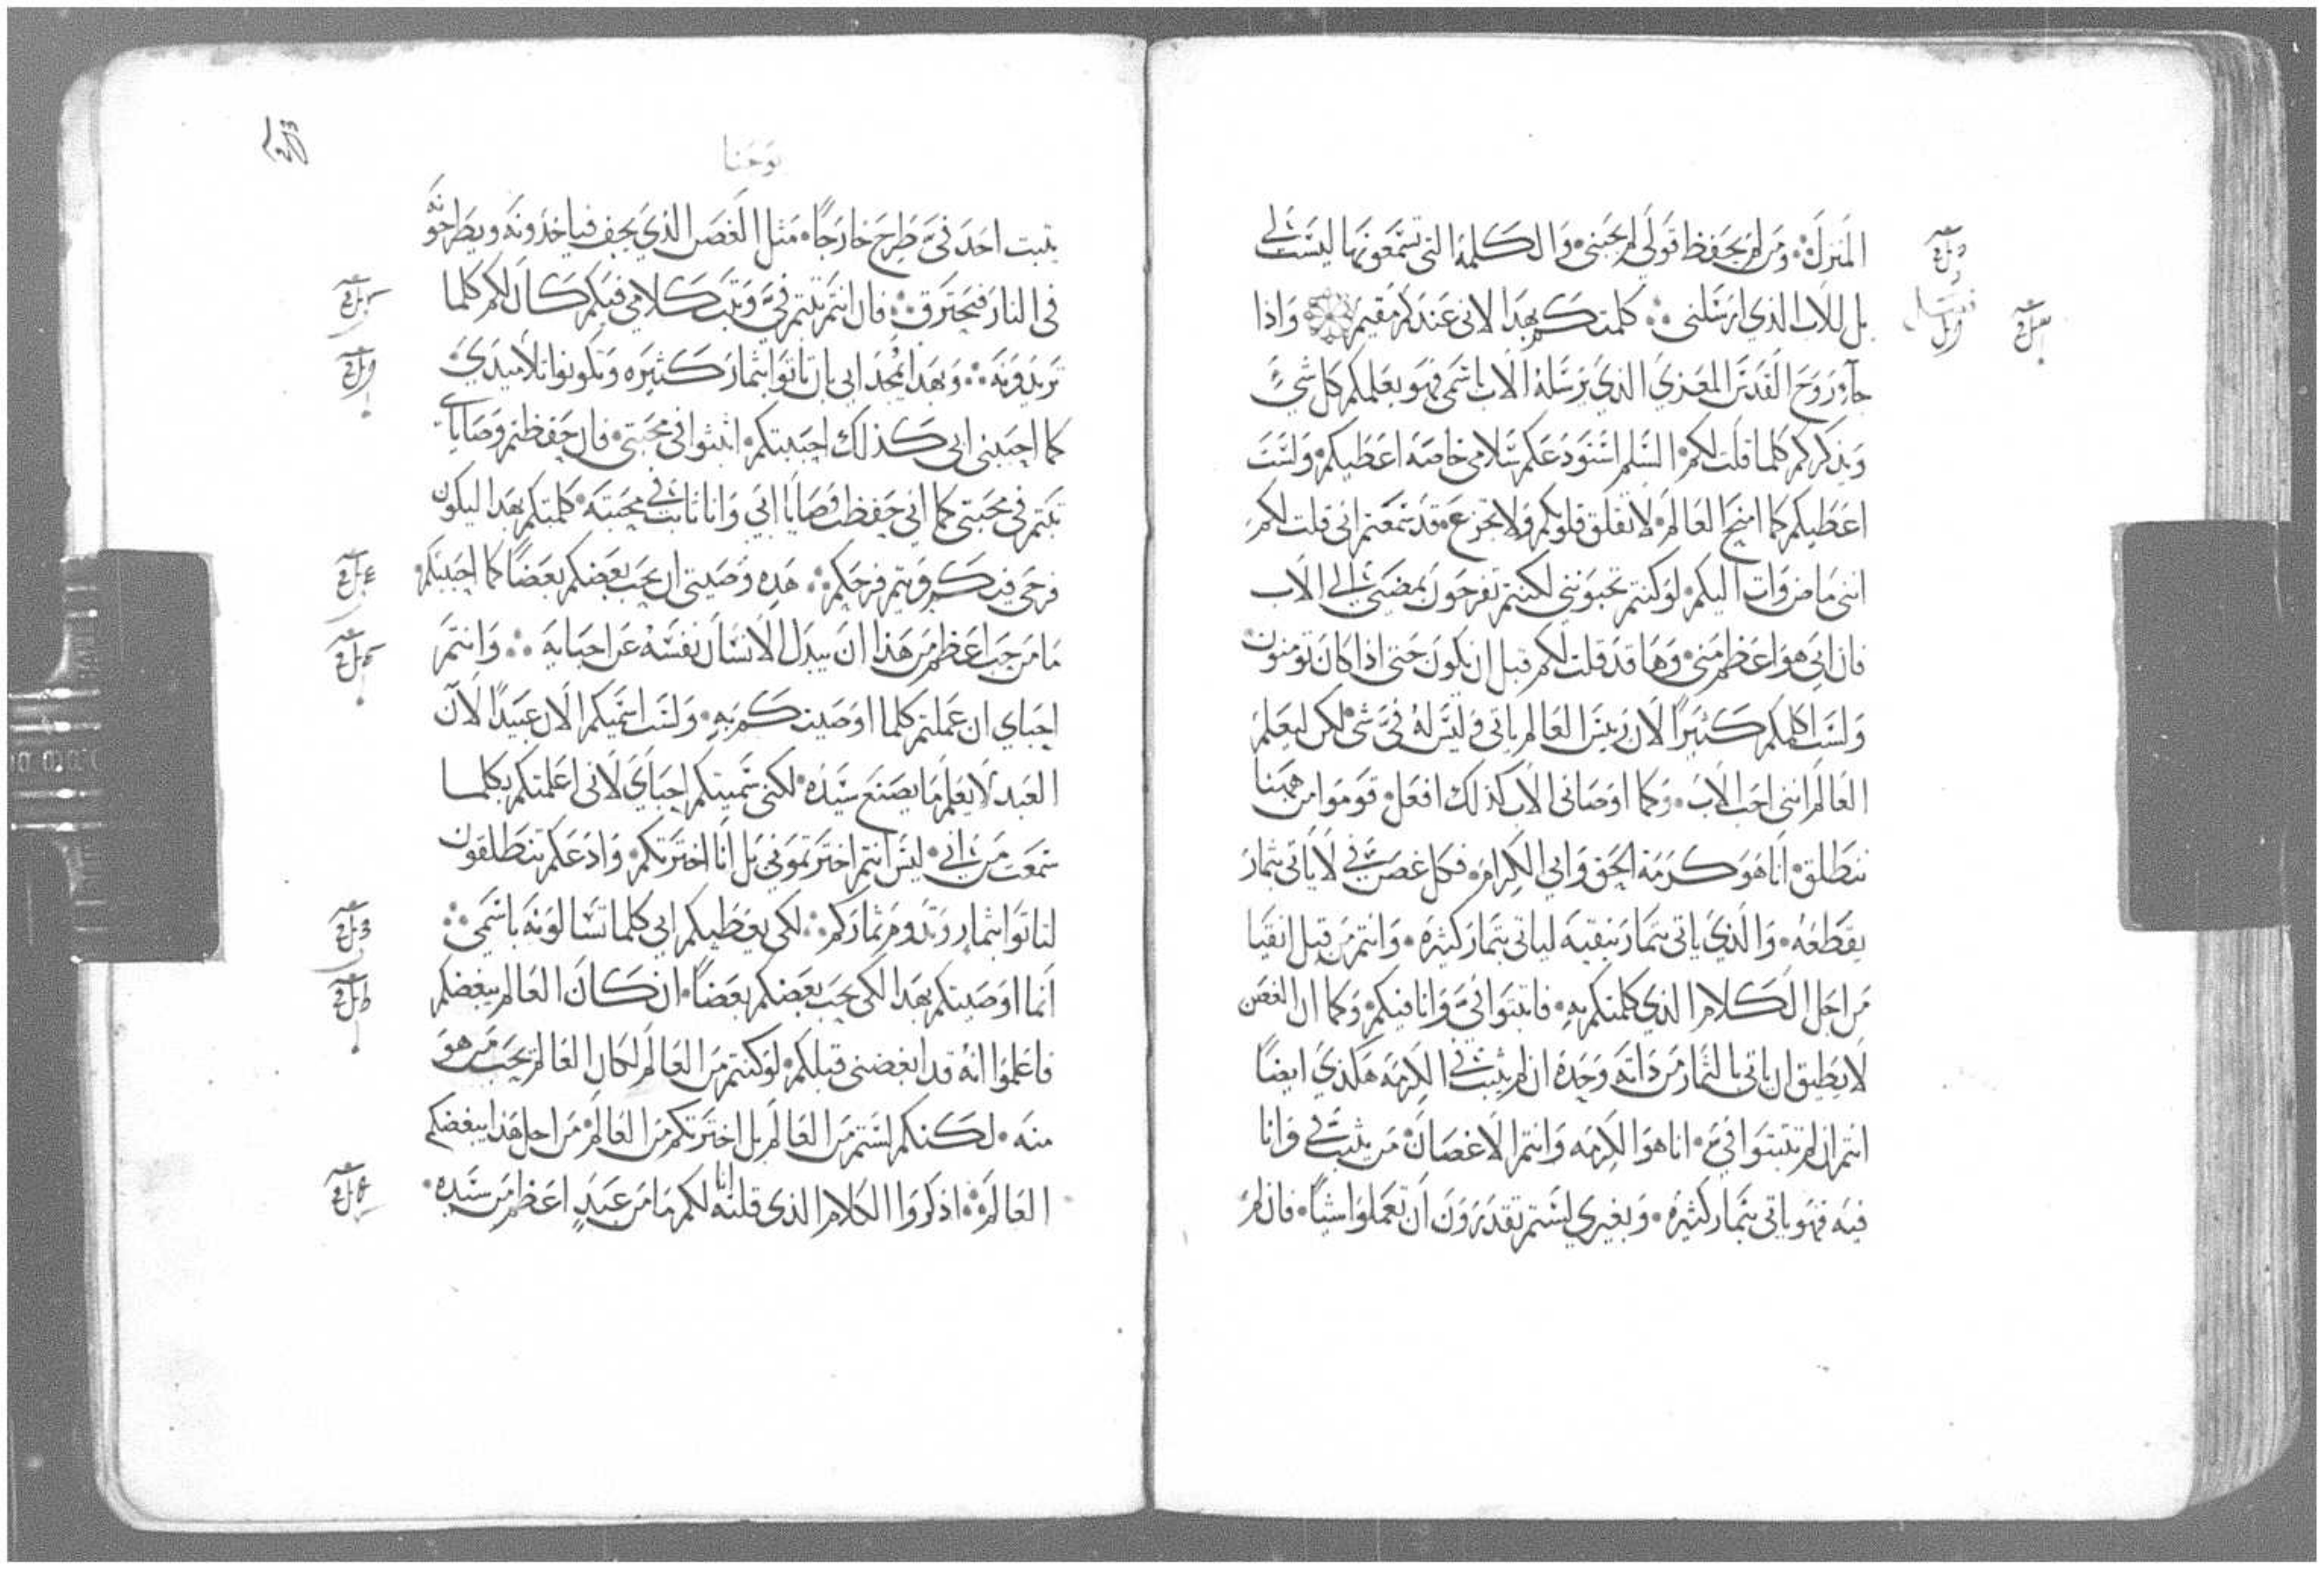 المنزل ومن لم يحفظ قولي لم يحبني والكلمة التي تسمعونها ليست لي
بل للاب الذي ارسلني كلمتكم بهذا لاني عندكم مقيم واذا
جآ روح القدس المعزي الذي يرسله الاب باسمي فهو يعلمكم كل شي
ويذكركم كلما قلت لكم السلم استودعكم سلامي خاصة اعطيكم ولست
اعطيكم كما امنح العالم لا تقلق قلوبكم ولا تجزع قد سمعتم اني قلت لكم
انني ماض وات اليكم لو كنتم تحبونني لكنتم تفرحون بمضيي الى الاب
فان ابي هو اعظم مني وها قد قلت لكم قبل ان يكون حتى اذا كان تومنون
ولست اكلمكم كثيرا لان ريس العالم ياتي وليس له في شي لكن ليعلم
العالم انني احب الاب وكما اوصاني الاب كذلك افعل قوموا من ههنا
ننطلق انا هو كرمة الحق وابي الكرام فكل غصن في لا ياتي بثمار
يقطعه والذي ياتي بثمار ينقيه لياتي بثمار كثيرة وانتم من قبل انقيا
من اجل الكلام الذي كلمتكم به فاثبتوا في وانا فيكم وكما ان الغصن
لا يطيق ان ياتي بالثمار من ذاته وحده ان لم يثبت في الكرمه هكذي ايضا
انتم ان لم تثبتوا في انا هو الكرمه وانتم الاغصان من يثبت في وانا
فيه فهو ياتي بثمار كثيرة وبغيري لستم تقدرون ان تعملوا شيا فان لم
يوحنا
يثبت احد في طرح خارجا مثل الغصن الذي يجف فياخذونه ويطرحونه
في النار فيحترق فان انتم ثبتم في وثبت كلامي فيكم كان لكم كلما
تريدونه وبهذا يمجد ابي بان تاتوا بثمار كثيره وتكونوا تلاميذي
كما احبني ابي كذلك احببتكم اثبتوا في محبتي فان حفظتم وصاياي
ثبتم في محبتي كما اني حفظت وصايا ابي وانا ثابت في محبته كلمتكم بهذا ليكون
فرحي فيكم ويتم فرحكم هذه وصيتي ان يحب بعضكم بعضا كما احببتكم
ما من حب اعظم من هذا ان يبدل الانسان نفسه عن احبايه وانتم
احباي ان عملتم كلما اوصيتكم به ولست اسميكم الان عبيدا لان
العبد لا يعلم ما يصنع سيده لكني سميتكم احباي لاني اعلمتكم بكلما
سمعت من ابي ليس انتم اخترتموني بل انا اخترتكم وادعكم تنطلقون
لتاتوا بثمار وتدوم ثماركم لكي يعطيكم ابي كلما تسالونه باسمي
انما اوصيتكم بهذا لكي يحب بعضكم بعضا ان كان العالم يبغضكم
فاعلموا انه قد ابغضني قبلكم لو كنتم من العالم لكان العالم يحب من هو
منه لكنكم لستم من العالم بل اخترتكم من العالم من اجل هذا يبغضكم
العالم اذكروا الكلام الذي قلته انا لكم ما من عبد اعظم من سيده